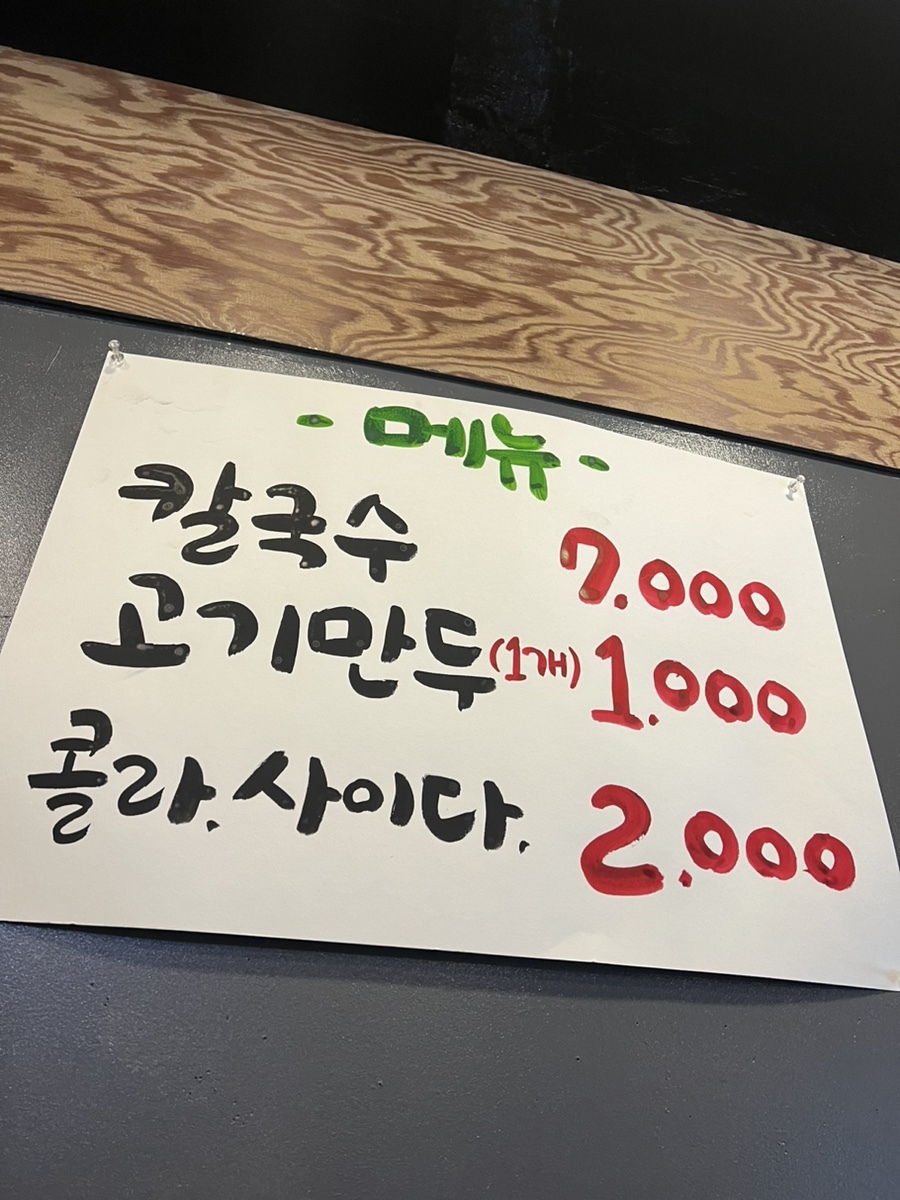 - 메뉴 -
칼국수 7.000
고기만두(1개) 1.000
콜라.사이다. 2.000